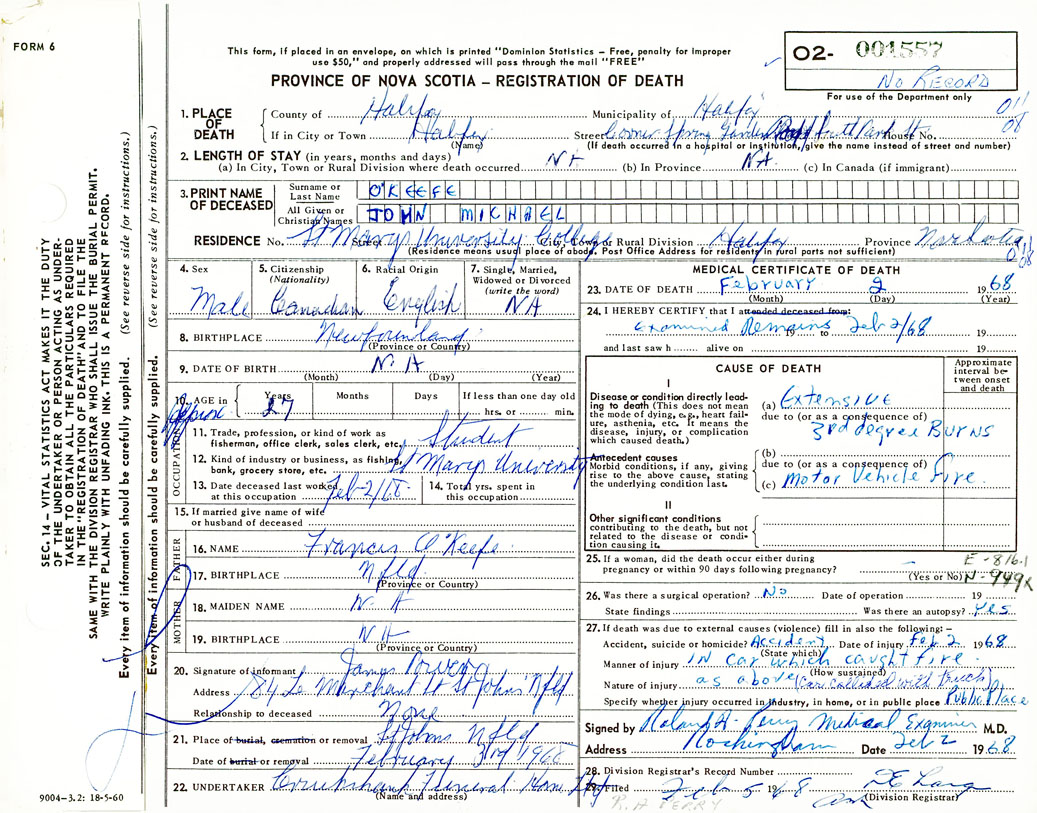 FORM 6
This form, if placed in an envelope, on which is printed "Dominion Statistics – Free, penalty for improper
use $50," and properly addressed will pass through the mail "FREE"
PROVINCE OF NOVA SCOTIA – REGISTRATION OF DEATH
02- 001557
No Record
For use of the Department only
1. PLACE OF DEATH
County of Halifax Municipality of Halifax
If in City or Town Halifax Street Corner Spring Garden Road South Park St House No.
(Name) (If death occurred in a hospital or institution, give the name instead of street and number)
2. LENGTH OF STAY (in years, months and days)
(a) In City, Town or Rural Division where death occurred NA (b) In Province NA (c) In Canada (if immigrant)
3. PRINT NAME OF DECEASED
Surname or Last Name O'KEEFE
All Given or Christian Names JOHN MICHAEL
RESIDENCE No. St Marys University College Street City, Town or Rural Division Halifax Province
(Residence means usual place of abode. Post Office Address for residents in rural parts not sufficient)
4. Sex Male
5. Citizenship (Nationality) Canadian
6. Racial Origin English
7. Single, Married, Widowed or Divorced (write the word) NA
8. BIRTHPLACE Newfoundland
(Province or Country)
9. DATE OF BIRTH N. A
(Month) (Day) (Year)
10. AGE in Approx Years 27 Months Days If less than one day old hrs. or min.
OCCUPATION
11. Trade, profession, or kind of work as fisherman, office clerk, sales clerk, etc. Student
12. Kind of industry or business, as fishing, bank, grocery store, etc. St Marys University
13. Date deceased last worked at this occupation Feb-2/68
14. Total yrs. spent in this occupation
15. If married give name of wife or husband of deceased
FATHER
16. NAME Francis O'Keefe
17. BIRTHPLACE Nfld
(Province or Country)
MOTHER
18. MAIDEN NAME N. A
19. BIRTHPLACE NA
(Province or Country)
20. Signature of informant James
Address 184 Le Marchant St St Johns Nfld
Relationship to deceased None
21. Place of burial, cremation or removal St Johns Nfld
Date of burial or removal February 3rd 1968
22. UNDERTAKER Cruikshank Funeral Home Ltd
(Name and address)
MEDICAL CERTIFICATE OF DEATH
23. DATE OF DEATH February 2 1968
(Month) (Day) (Year)
24. I HEREBY CERTIFY that I attended deceased from:
Examined Remains Feb 2/68 19
and last saw h alive on 19
CAUSE OF DEATH
Approximate interval between onset and death
I
Disease or condition directly leading to death (This does not mean the mode of dying, e.g., heart failure, asthenia, etc. It means the disease, injury, or complication which caused death.)
(a) Extensive
due to (or as a consequence of)
3rd degree Burns
Antecedent causes
Morbid conditions, if any, giving rise to the above cause, stating the underlying condition last.
(b)
due to (or as a consequence of)
(c) Motor Vehicle Fire.
II
Other significant conditions contributing to the death, but not related to the disease or condition causing it.
25. If a woman, did the death occur either during
pregnancy or within 90 days following pregnancy?
(Yes or No)
E-816.1
N-949X
26. Was there a surgical operation? No Date of operation 19
State findings Was there an autopsy? Yes
27. If death was due to external causes (violence) fill in also the following: –
Accident, suicide or homicide? Accident Date of injury Feb 2 1968
(State which)
Manner of injury IN car which caught fire.
(How sustained)
Nature of injury as above (Car collided with truck)
Specify whether injury occurred in industry, in home, or in public place Public Place
Signed by Roland A. Perry Medical Examiner M.D.
Address Rockingham Date Feb 2 1968
28. Division Registrar's Record Number
29. Filed Feb 5 1968
(Division Registrar)
R. A PERRY
SEC. 14 – VITAL STATISTICS ACT MAKES IT THE DUTY
OF THE UNDERTAKER OR PERSON ACTING AS UNDERTAKER
TO OBTAIN ALL THE PARTICULARS REQUIRED
IN THE "REGISTRATION OF DEATH" AND TO FILE THE
SAME WITH THE DIVISION REGISTRAR WHO SHALL ISSUE THE BURIAL PERMIT.
WRITE PLAINLY WITH UNFADING INK. THIS IS A PERMANENT RECORD.
Every item of information should be carefully supplied. (See reverse side for instructions.)
Every item of information should be carefully supplied. (See reverse side for instructions.)
9004-3.2: 18-5-60